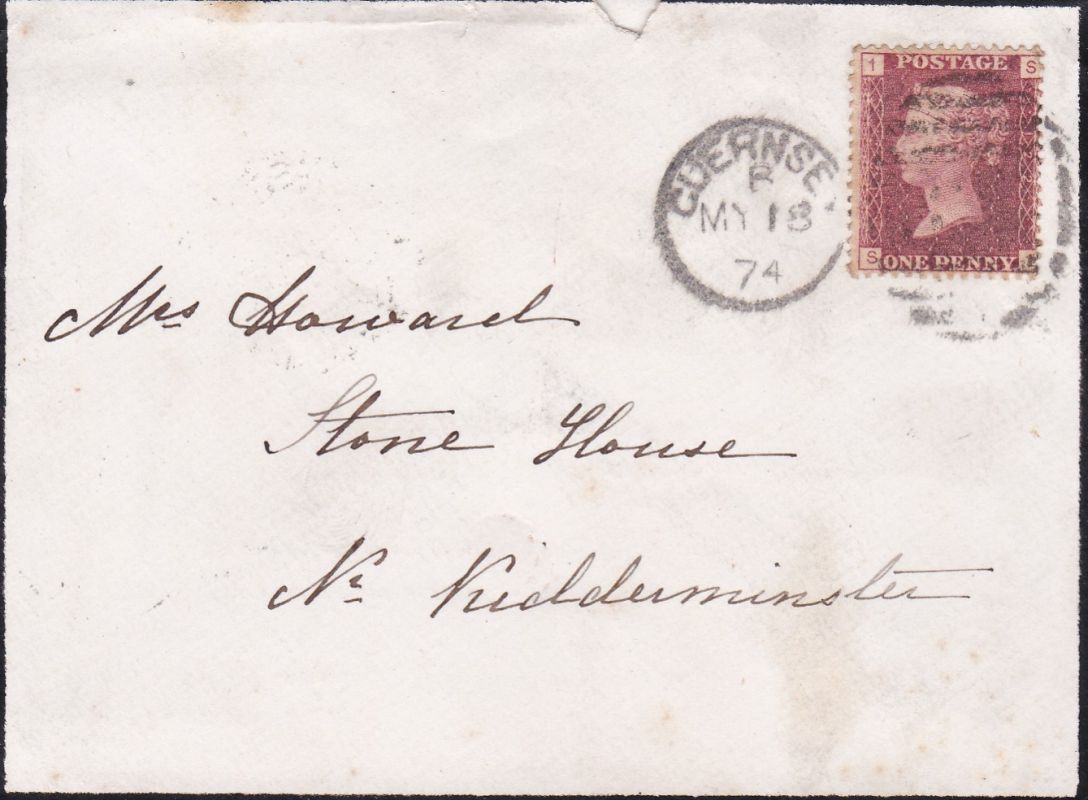 1 POSTAGE S
S ONE PENNY
GUERNSE
B
MY 18
74
Mrs Howard
Stone House
Nr Kidderminster